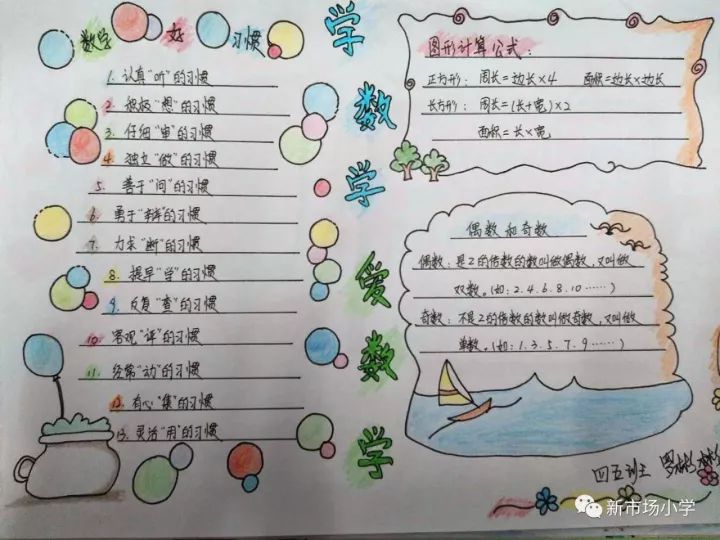 数学好习惯
1. 认真“听”的习惯
2. 积极“想”的习惯
3. 仔细“审”的习惯
4. 独立“做”的习惯
5. 善于“问”的习惯
6. 勇于“辩”的习惯
7. 力求“断”的习惯
8. 提早“学”的习惯
9. 反复“查”的习惯
10. 客观“评”的习惯
11. 经常“动”的习惯
12. 有心“集”的习惯
13. 灵活“用”的习惯
学数学爱数学
图形计算公式：
正方形：周长=边长×4 面积=边长×边长
长方形：周长=(长+宽)×2
面积=长×宽
偶数和奇数
偶数：是2的倍数的数叫做偶数，又叫做
双数。(如：2.4.6.8.10……)
奇数：不是2的倍数的数叫做奇数，又叫做
单数。(如：1.3.5.7.9……)
四五班
新市场小学